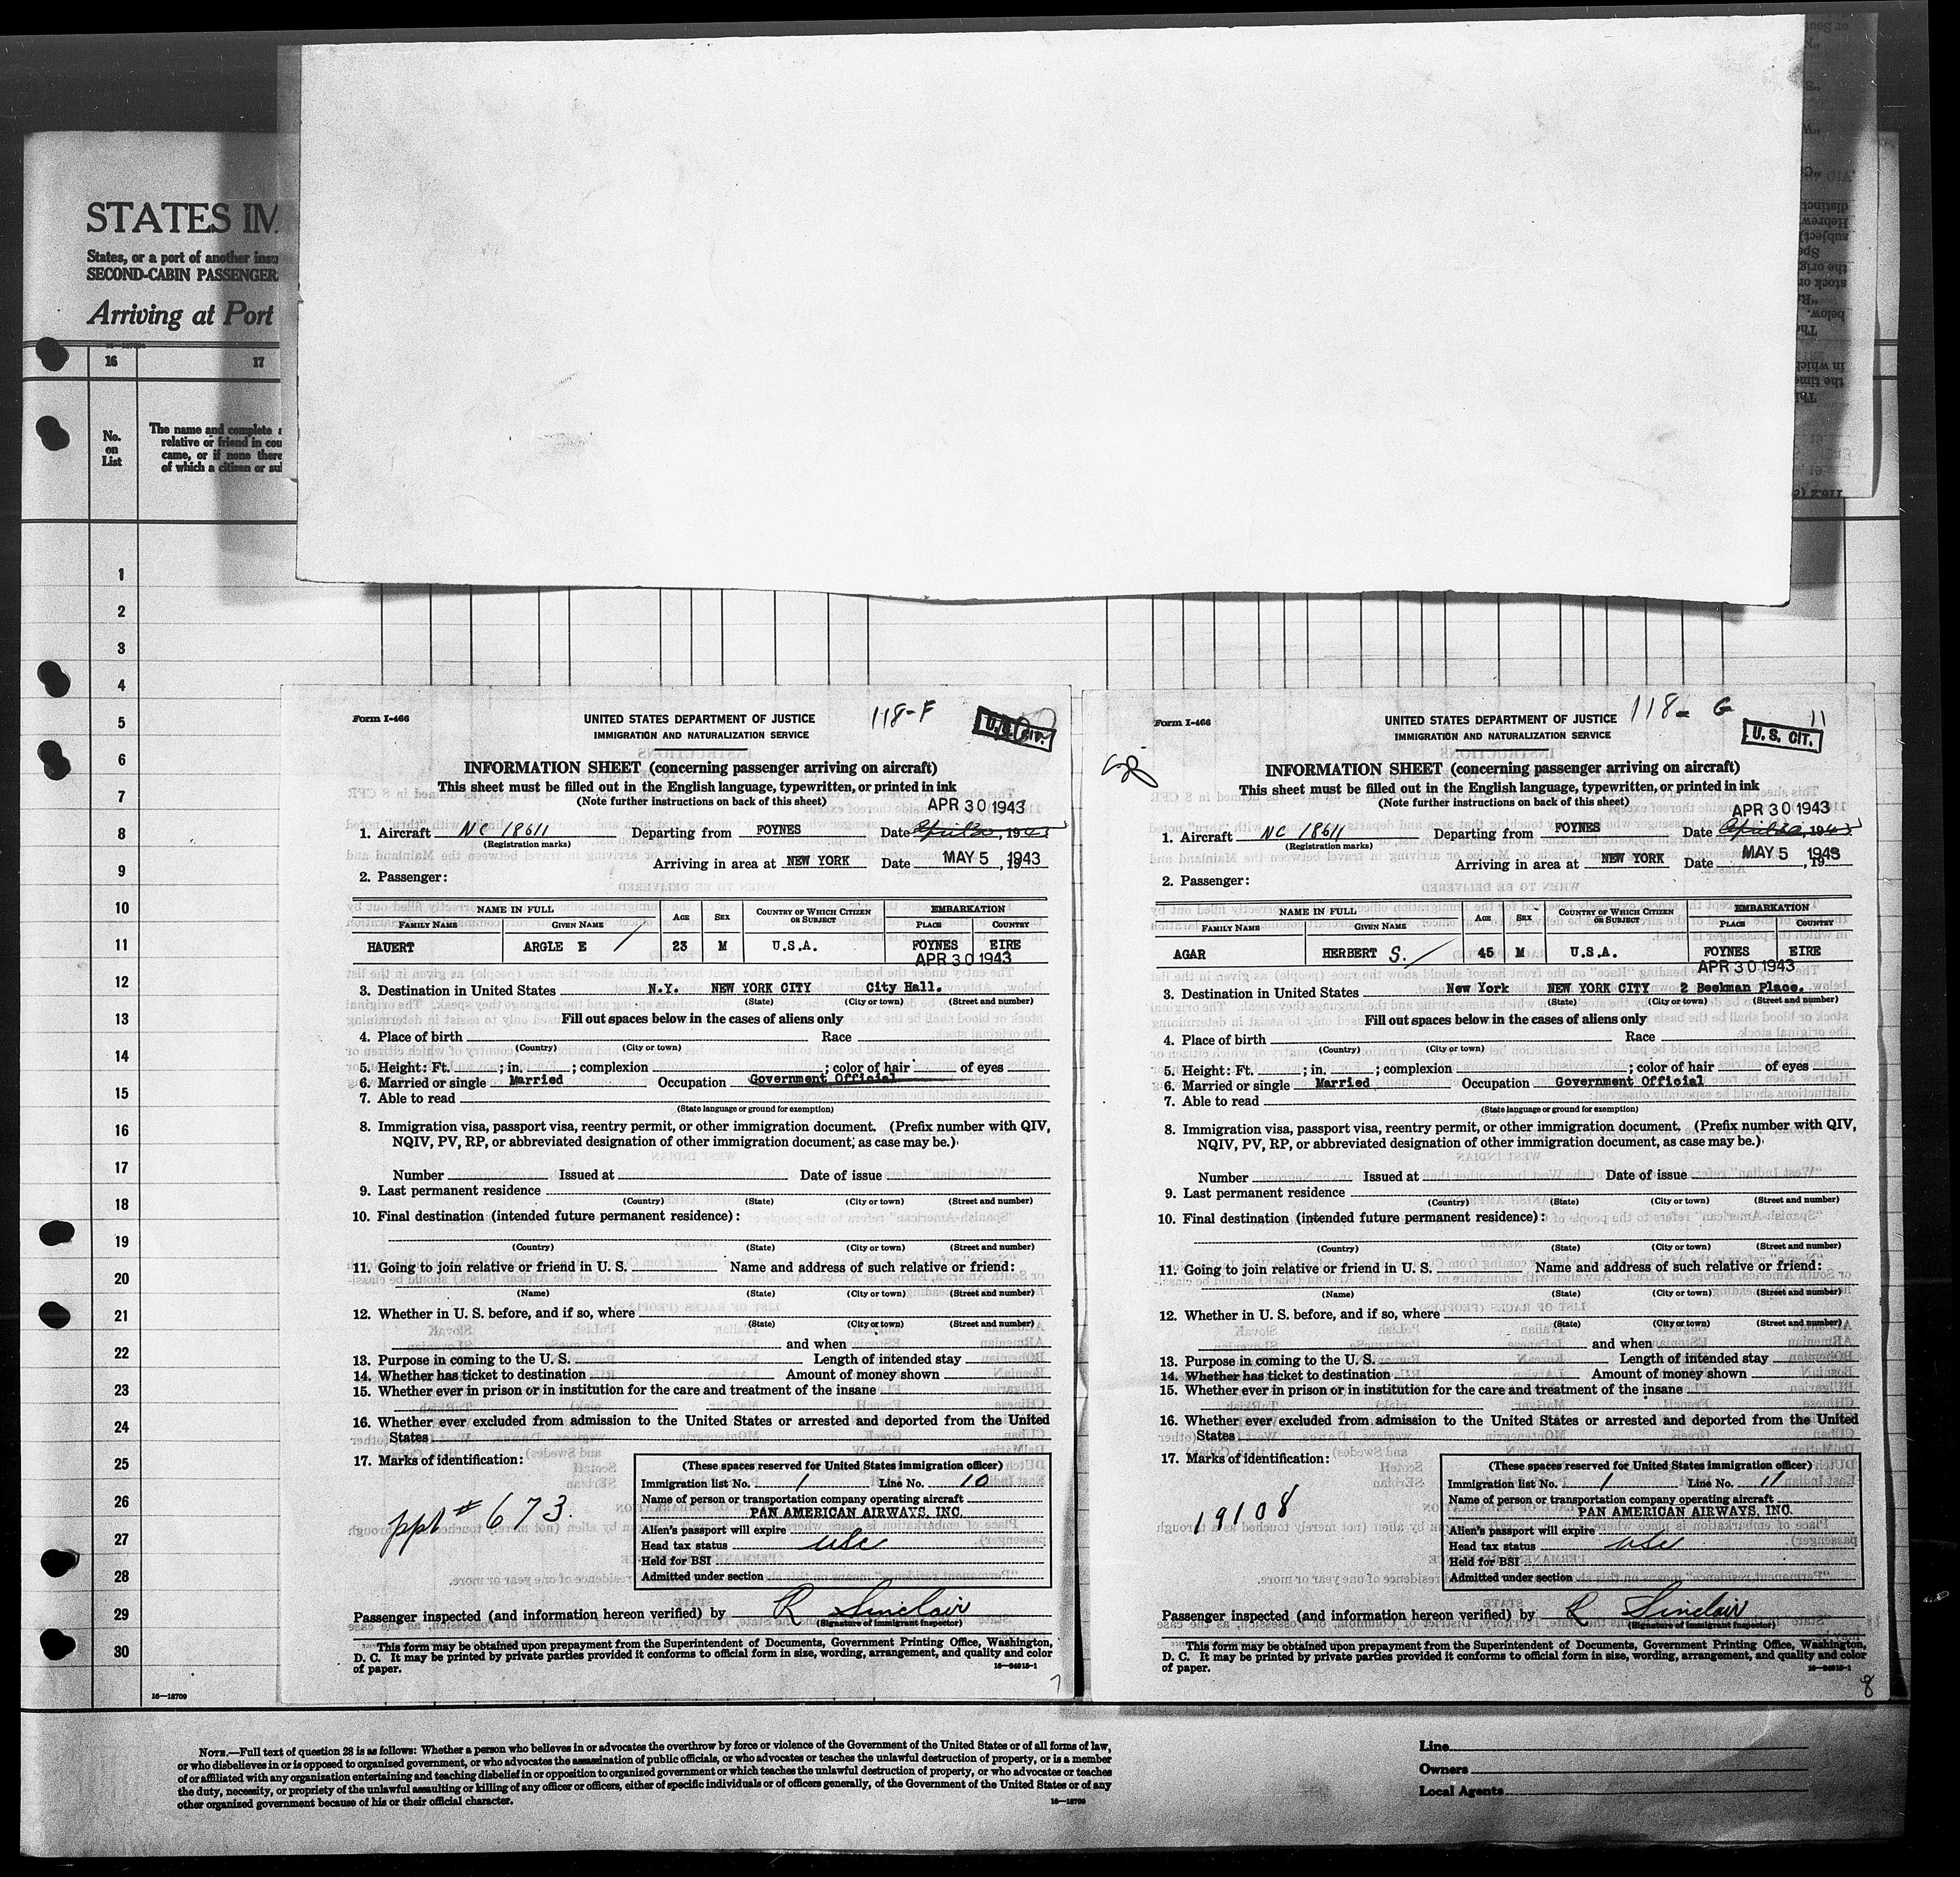 STATES IM
States, or a port of another insu
SECOND-CABIN PASSENGER
Arriving at Port
16 17
No. on List
The name and complete a
relative or friend in cou
came, or if none there
of which a citizen or su
1
2
3
4
5
6
7
8
9
10
11
12
13
14
15
16
17
18
19
20
21
22
23
24
25
26
27
28
29
30
16—13709
Form I-466
UNITED STATES DEPARTMENT OF JUSTICE
118-F
IMMIGRATION AND NATURALIZATION SERVICE
U.S. CIT.
INFORMATION SHEET (concerning passenger arriving on aircraft)
This sheet must be filled out in the English language, typewritten, or printed in ink
(Note further instructions on back of this sheet)
APR 30 1943
1. Aircraft NC 18611 Departing from FOYNES Date April 30, 1943
(Registration marks)
Arriving in area at NEW YORK Date MAY 5 1943, 19
2. Passenger:
NAME IN FULL AGE SEX COUNTRY OF WHICH CITIZEN OR SUBJECT EMBARKATION
FAMILY NAME GIVEN NAME PLACE COUNTRY
HAUERT ARGLE E / 23 M U.S.A. FOYNES EIRE
APR 30 1943
3. Destination in United States N.Y. NEW YORK CITY City Hall.
(State) (City or town) (Street and number)
Fill out spaces below in the cases of aliens only
4. Place of birth Race
(Country) (City or town)
5. Height: Ft. ; in. ; complexion ; color of hair of eyes
6. Married or single Married Occupation Government Official
7. Able to read
(State language or ground for exemption)
8. Immigration visa, passport visa, reentry permit, or other immigration document. (Prefix number with QIV,
NQIV, PV, RP, or abbreviated designation of other immigration document, as case may be.)
Number Issued at Date of issue
9. Last permanent residence
(Country) (State) (City or town) (Street and number)
10. Final destination (intended future permanent residence):
(Country) (State) (City or town) (Street and number)
11. Going to join relative or friend in U. S. Name and address of such relative or friend:
(Name) (State) (City or town) (Street and number)
12. Whether in U. S. before, and if so, where
(State) (City or town) (Street and number)
and when
13. Purpose in coming to the U. S. Length of intended stay
14. Whether has ticket to destination Amount of money shown
15. Whether ever in prison or in institution for the care and treatment of the insane
16. Whether ever excluded from admission to the United States or arrested and deported from the United
States
17. Marks of identification:
ppt # 673.
(These spaces reserved for United States immigration officer)
Immigration list No. 1 Line No. 10
Name of person or transportation company operating aircraft
PAN AMERICAN AIRWAYS, INC.
Alien's passport will expire
Head tax status usc
Held for BSI
Admitted under section
Passenger inspected (and information hereon verified) by R Sinclair
(Signature of immigrant inspector)
This form may be obtained upon prepayment from the Superintendent of Documents, Government Printing Office, Washington,
D. C. It may be printed by private parties provided it conforms to official form in size, wording, arrangement, and quality and color
of paper.
7
Form I-466
UNITED STATES DEPARTMENT OF JUSTICE
118- G
11
IMMIGRATION AND NATURALIZATION SERVICE
U. S. CIT.
INFORMATION SHEET (concerning passenger arriving on aircraft)
This sheet must be filled out in the English language, typewritten, or printed in ink
(Note further instructions on back of this sheet)
APR 30 1943
1. Aircraft NC 18611 Departing from FOYNES Date April 30, 1943
(Registration marks)
Arriving in area at NEW YORK Date MAY 5 1943, 19
2. Passenger:
NAME IN FULL AGE SEX COUNTRY OF WHICH CITIZEN OR SUBJECT EMBARKATION
FAMILY NAME GIVEN NAME PLACE COUNTRY
AGAR HERBERT S. / 45 M U.S.A. FOYNES EIRE
APR 30 1943
3. Destination in United States New York NEW YORK CITY 2 Beekman Place.
(State) (City or town) (Street and number)
Fill out spaces below in the cases of aliens only
4. Place of birth Race
(Country) (City or town)
5. Height: Ft. ; in. ; complexion ; color of hair of eyes
6. Married or single Married Occupation Government Official
7. Able to read
(State language or ground for exemption)
8. Immigration visa, passport visa, reentry permit, or other immigration document. (Prefix number with QIV,
NQIV, PV, RP, or abbreviated designation of other immigration document, as case may be.)
Number Issued at Date of issue
9. Last permanent residence
(Country) (State) (City or town) (Street and number)
10. Final destination (intended future permanent residence):
(Country) (State) (City or town) (Street and number)
11. Going to join relative or friend in U. S. Name and address of such relative or friend:
(Name) (State) (City or town) (Street and number)
12. Whether in U. S. before, and if so, where
(State) (City or town) (Street and number)
and when
13. Purpose in coming to the U. S. Length of intended stay
14. Whether has ticket to destination Amount of money shown
15. Whether ever in prison or in institution for the care and treatment of the insane
16. Whether ever excluded from admission to the United States or arrested and deported from the United
States
17. Marks of identification:
19108
(These spaces reserved for United States immigration officer)
Immigration list No. 1 Line No. 11
Name of person or transportation company operating aircraft
PAN AMERICAN AIRWAYS, INC.
Alien's passport will expire
Head tax status usc
Held for BSI
Admitted under section
Passenger inspected (and information hereon verified) by R Sinclair
(Signature of immigrant inspector)
This form may be obtained upon prepayment from the Superintendent of Documents, Government Printing Office, Washington,
D. C. It may be printed by private parties provided it conforms to official form in size, wording, arrangement, and quality and color
of paper.
8
NOTE.—Full text of question 28 is as follows: Whether a person who believes in or advocates the overthrow by force or violence of the Government of the United States or of all forms of law,
or who disbelieves in or is opposed to organized government, or who advocates the assassination of public officials, or who advocates or teaches the unlawful destruction of property, or is a member
of or affiliated with any organization entertaining and teaching disbelief in or opposition to organized government or which teaches the unlawful destruction of property, or who advocates or teaches
the duty, necessity, or propriety of the unlawful assaulting or killing of any officer or officers, either of specific individuals or of officers generally, of the Government of the United States or of any
other organized government because of his or their official character.
16—13709
Line
Owners
Local Agents